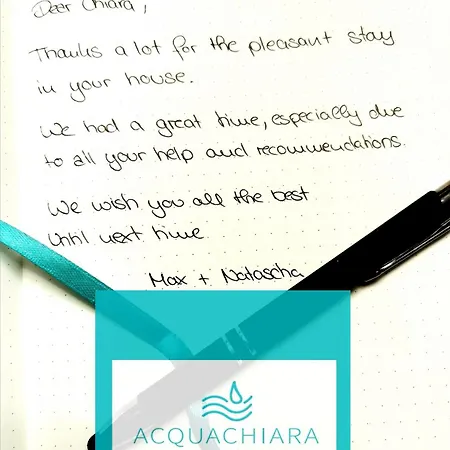 Dear Chiara,
Thanks a lot for the pleasant stay
in your house.
We had a great time, especially due
to all your help and recommendations.
We wish you all the best
Until next time
Max + Natascha
ACQUACHIARA